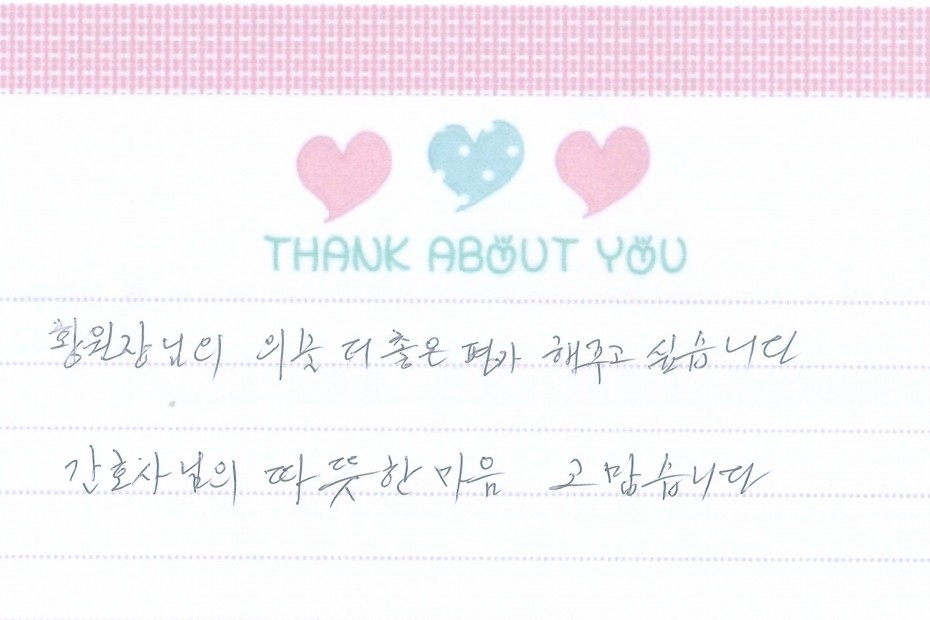 THANK ABOUT YOU
황원장님의 더 좋은 평가 해주고 싶습니다
간호사님의 따뜻한 마음 고맙습니다